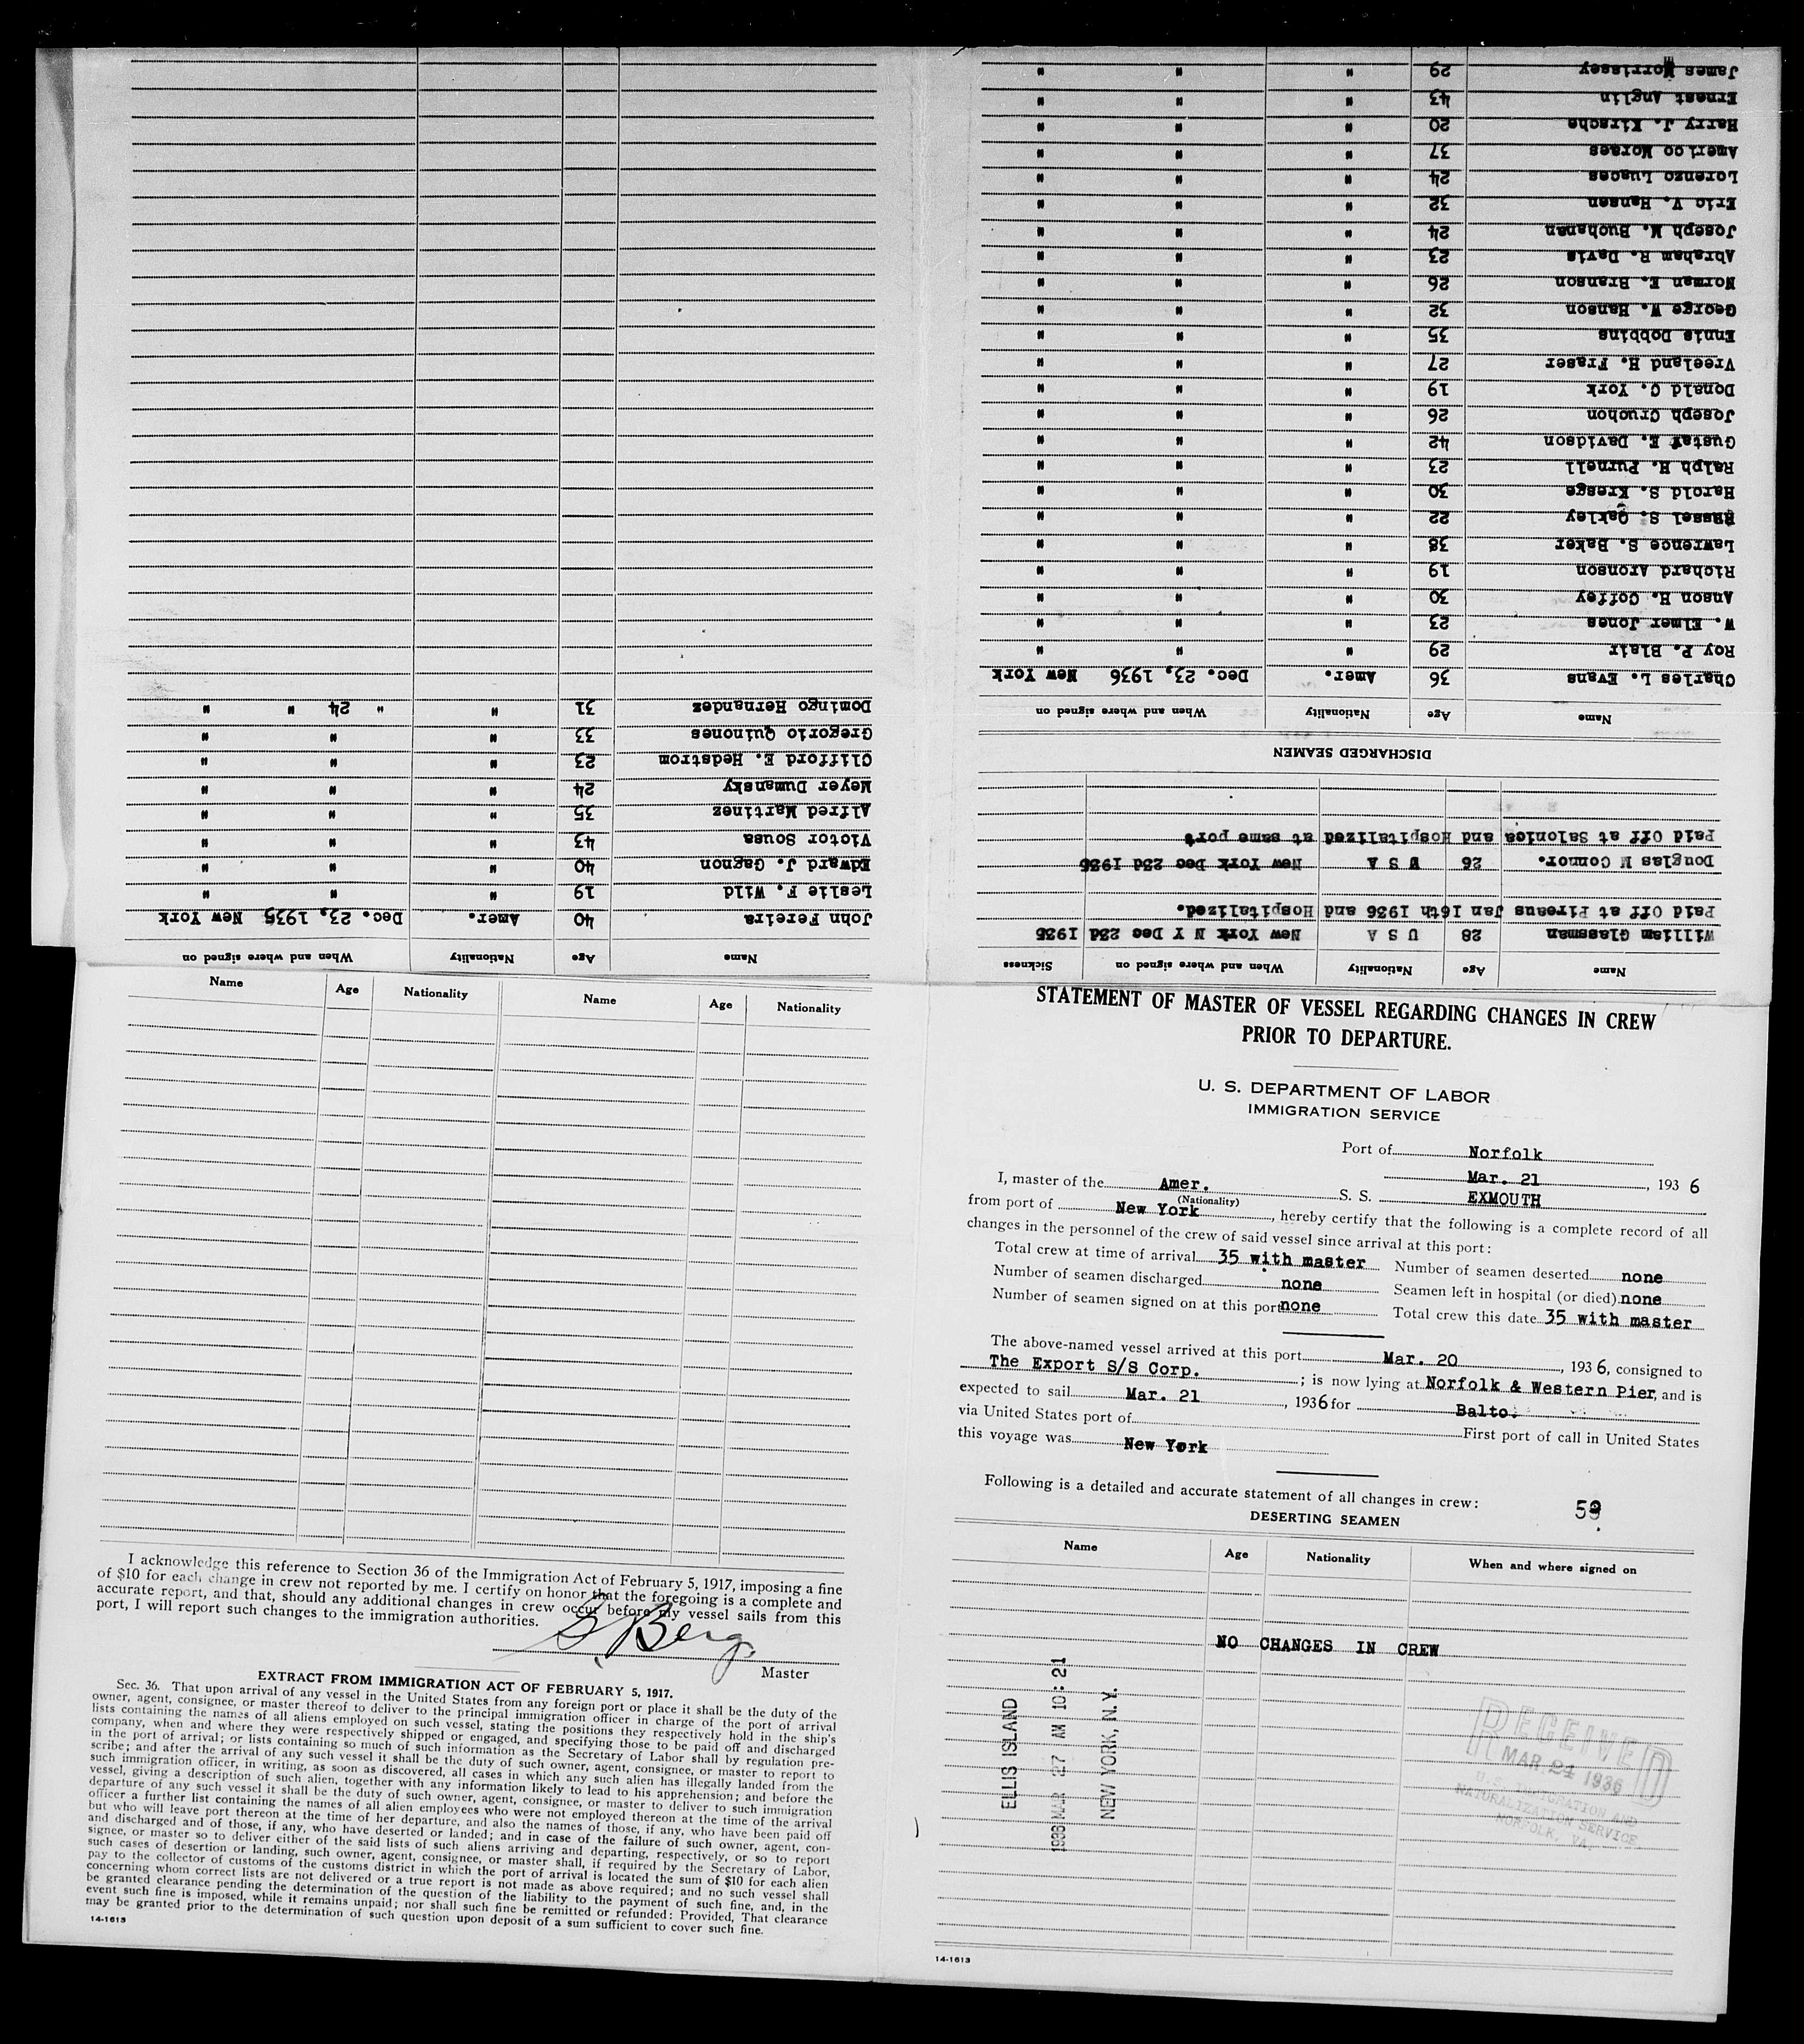 Name Age Nationality When and where signed on Sickness
William Glassman 28 U S A New York N Y Dec 23d 1935
Paid Off at Pireaus Jan 16th 1936 and Hospitalized.
Douglas M Connor. 26 U S A New York Dec 23d 1936
Paid Off at Salonica and Hospitalized at same port
DISCHARGED SEAMEN
Name Age Nationality When and where signed on
Charles L. Evans 36 Amer. Dec. 23, 1936 New York
Roy P. Blair 29 " " "
W. Elmer Jones 23 " " "
Anson H. Coffey 30 " " "
Richard Aronson 19 " " "
Lawrence S. Baker 38 " " "
Russel S. Oakley 22 " " "
Harold S. Kresge 30 " " "
Ralph H. Purnell 23 " " "
Gustaf E. Davidson 42 " " "
Joseph Cruchon 26 " " "
Donald C. York 19 " " "
Vreeland H. Fraser 27 " " "
Ennis Dobbins 35 " " "
George W. Hanson 32 " " "
Norman E. Branson 26 " " "
Abraham R. Davis 23 " " "
Joseph M. Buchanan 24 " " "
Eric V. Hansen 32 " " "
Lorenzo Lugoes 24 " " "
Americo Moraes 37 " " "
Harry J. Kirsche 20 " " "
Ernest Anglin 43 " " "
James Morrissey 29 " " "
Name Age Nationality When and where signed on
John Fereira 40 Amer. Dec. 23, 1935 New York
Leslie F. Wild 19 " " "
Edward J. Gagnon 40 " " "
Victor Sousa 43 " " "
Alfred Martinez 35 " " "
Meyer Dumansky 24 " " "
Clifford E. Hedstrom 23 " " "
Gregorio Quinones 33 " " "
Domingo Hernandez 31 " " 24 " "
Name Age Nationality Name Age Nationality
I acknowledge this reference to Section 36 of the Immigration Act of February 5, 1917, imposing a fine
of $10 for each change in crew not reported by me. I certify on honor that the foregoing is a complete and
accurate report, and that, should any additional changes in crew occur before my vessel sails from this
port, I will report such changes to the immigration authorities.
S. Berg.
Master
EXTRACT FROM IMMIGRATION ACT OF FEBRUARY 5, 1917.
Sec. 36. That upon arrival of any vessel in the United States from any foreign port or place it shall be the duty of the
owner, agent, consignee, or master thereof to deliver to the principal immigration officer in charge of the port of arrival
lists containing the names of all aliens employed on such vessel, stating the positions they respectively hold in the ship's
company, when and where they were respectively shipped or engaged, and specifying those to be paid off and discharged
in the port of arrival; or lists containing so much of such information as the Secretary of Labor shall by regulation pre-
scribe; and after the arrival of any such vessel it shall be the duty of such owner, agent, consignee, or master to report to
such immigration officer, in writing, as soon as discovered, all cases in which any such alien has illegally landed from the
vessel, giving a description of such alien, together with any information likely to lead to his apprehension; and before the
departure of any such vessel it shall be the duty of such owner, agent, consignee, or master to deliver to such immigration
officer a further list containing the names of all alien employees who were not employed thereon at the time of the arrival
but who will leave port thereon at the time of her departure, and also the names of those, if any, who have been paid off
and discharged and of those, if any, who have deserted or landed; and in case of the failure of such owner, agent, con-
signee, or master so to deliver either of the said lists of such aliens arriving and departing, respectively, or so to report
such cases of desertion or landing, such owner, agent, consignee, or master shall, if required by the Secretary of Labor,
pay to the collector of customs of the customs district in which the port of arrival is located the sum of $10 for each alien
concerning whom correct lists are not delivered or a true report is not made as above required; and no such vessel shall
be granted clearance pending the determination of the question of the liability to the payment of such fine, and, in the
event such fine is imposed, while it remains unpaid; nor shall such fine be remitted or refunded: Provided, That clearance
may be granted prior to the determination of such question upon deposit of a sum sufficient to cover such fine.
14-1613
STATEMENT OF MASTER OF VESSEL REGARDING CHANGES IN CREW
PRIOR TO DEPARTURE.
U. S. DEPARTMENT OF LABOR
IMMIGRATION SERVICE
Port of Norfolk
Mar. 21, 1936
I, master of the Amer. S. S. EXMOUTH
(Nationality)
from port of New York, hereby certify that the following is a complete record of all
changes in the personnel of the crew of said vessel since arrival at this port:
Total crew at time of arrival 35 with master Number of seamen deserted none
Number of seamen discharged none Seamen left in hospital (or died) none
Number of seamen signed on at this port none Total crew this date 35 with master
The above-named vessel arrived at this port Mar. 20, 1936, consigned to
The Export S/S Corp.; is now lying at Norfolk & Western Pier, and is
expected to sail Mar. 21, 1936 for Balto.
via United States port of First port of call in United States
this voyage was New York
Following is a detailed and accurate statement of all changes in crew:
DESERTING SEAMEN
Name Age Nationality When and where signed on
NO CHANGES IN CREW
ELLIS ISLAND
1936 MAR 27 AM 10:21
NEW YORK, N.Y.
RECEIVED
MAR 21 1936
U.S. IMMIGRATION AND
NATURALIZATION SERVICE
NORFOLK, VA.
14-1613